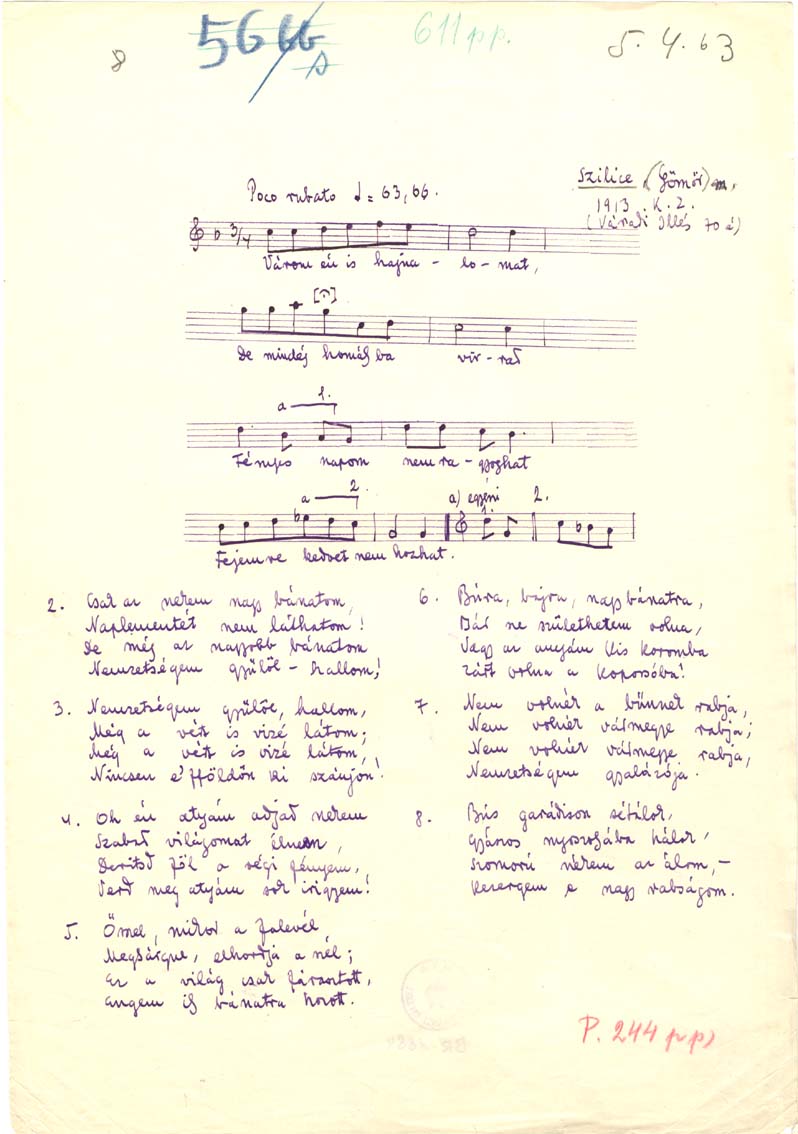 8
5666
611 pp.
5. 4. 63
Szilice (Gömör) m.
1913. K. Z.
(Váradi Illés 70 é)
Poco rubato = 63, 66.
3/4
Várom én is hajna - lo - mat,
De mindég homályba vir - rad
a 1.
Fényes napom nem ra - gyoghat
a 2. a) egyéni 1. 2.
Fejemre kedvet nem hozhat.
2. Csak az nekem nagy bánatom,
Naplementét nem láthatom!
De még az nagyobb bánatom
Nemzetségem gyűlöl - hallom!
3. Nemzetségem gyűlöl, hallom,
Még a vért is vizé látom;
Még a vért is vizé látom,
Nincsen e'fföldön ki szánjon!
4. Oh én atyám adjad nekem
Szabad világomat élnem,
Derítsd föl a régi fényem,
Verd meg atyám sok irigyem!
5. Ömel, mikor a falevél
Megsárgul, elhordja a nél;
Ez a világ csak fárasztott,
Engem is bánatra hozott.
6. Búra, bajra, nagy bánatra,
Bár ne születhetem volna,
Vagy az anyám kis koromba
Zárt volna a koporsóba!
7. Nem volnék a bűnnek rabja,
Nem volnék vármegye rabja;
Nem volnék vármegye rabja,
Nemzetségem gyalázója.
8. Bús garádison sétálok,
Gyászos nyoszolyába hálok,
Szomorú nékem az álom, -
Kesergem e nagy rabságom.
P. 244 pp)